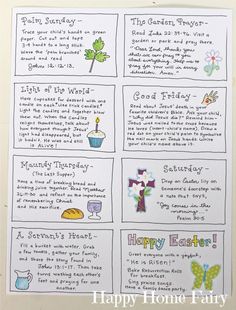 Palm Sunday-
Trace your child's hands on green
paper. Cut out and tape
3-4 hands to a long stick.
Wave the "palm branches"
around and read
John 12:12-13.
The Garden Prayer-
Read Luke 22:39-46. Visit a
garden or park and pray there.
"Dear Lord, thank you
that we can pray to you
about everything. Help me to
pray for your will in every
situation. Amen."
Light of the World-
Have cupcakes for dessert with one
candle on each (use trick candles!)
Light the candles and explain
Jesus
when
about
how everyone thought Jesus'
light had disappeared, but
it hadn't. He was and still
is ALIVE!
Good Friday-
Read about Jesus' death in your
favorite children's Bible. Ask your child,
"Why did Jesus die?" Remind them
Jesus was nailed to the cross because
he loves (insert child's name). Draw a
red dot on your child's palm to symbolize
the nail marks on Christ's hands.
Maundy Thursday-
(The Last Supper)
Have a time of breaking bread and
drinking juice together. Read Matthew
26:26-30 and reflect on the importance
of remembering Christ
and His sacrifice.
Saturday-
Drop an Easter lily on
someone's doorstep with a
note that says,
"Joy comes in the
morning!"
Psalm 30:5
A Servant's Heart-
Fill a bucket with water. Grab
a few towels, gather your family,
and share the story found in
John 13:1-17. Then take
turns washing each other's
feet and praying for one
another.
Happy Easter!
Greet everyone with a joyful,
"He is Risen!"
Bake Resurrection Rolls
for breakfast.
Sing praise songs
Have a family dance party.
Happy Home Fairy